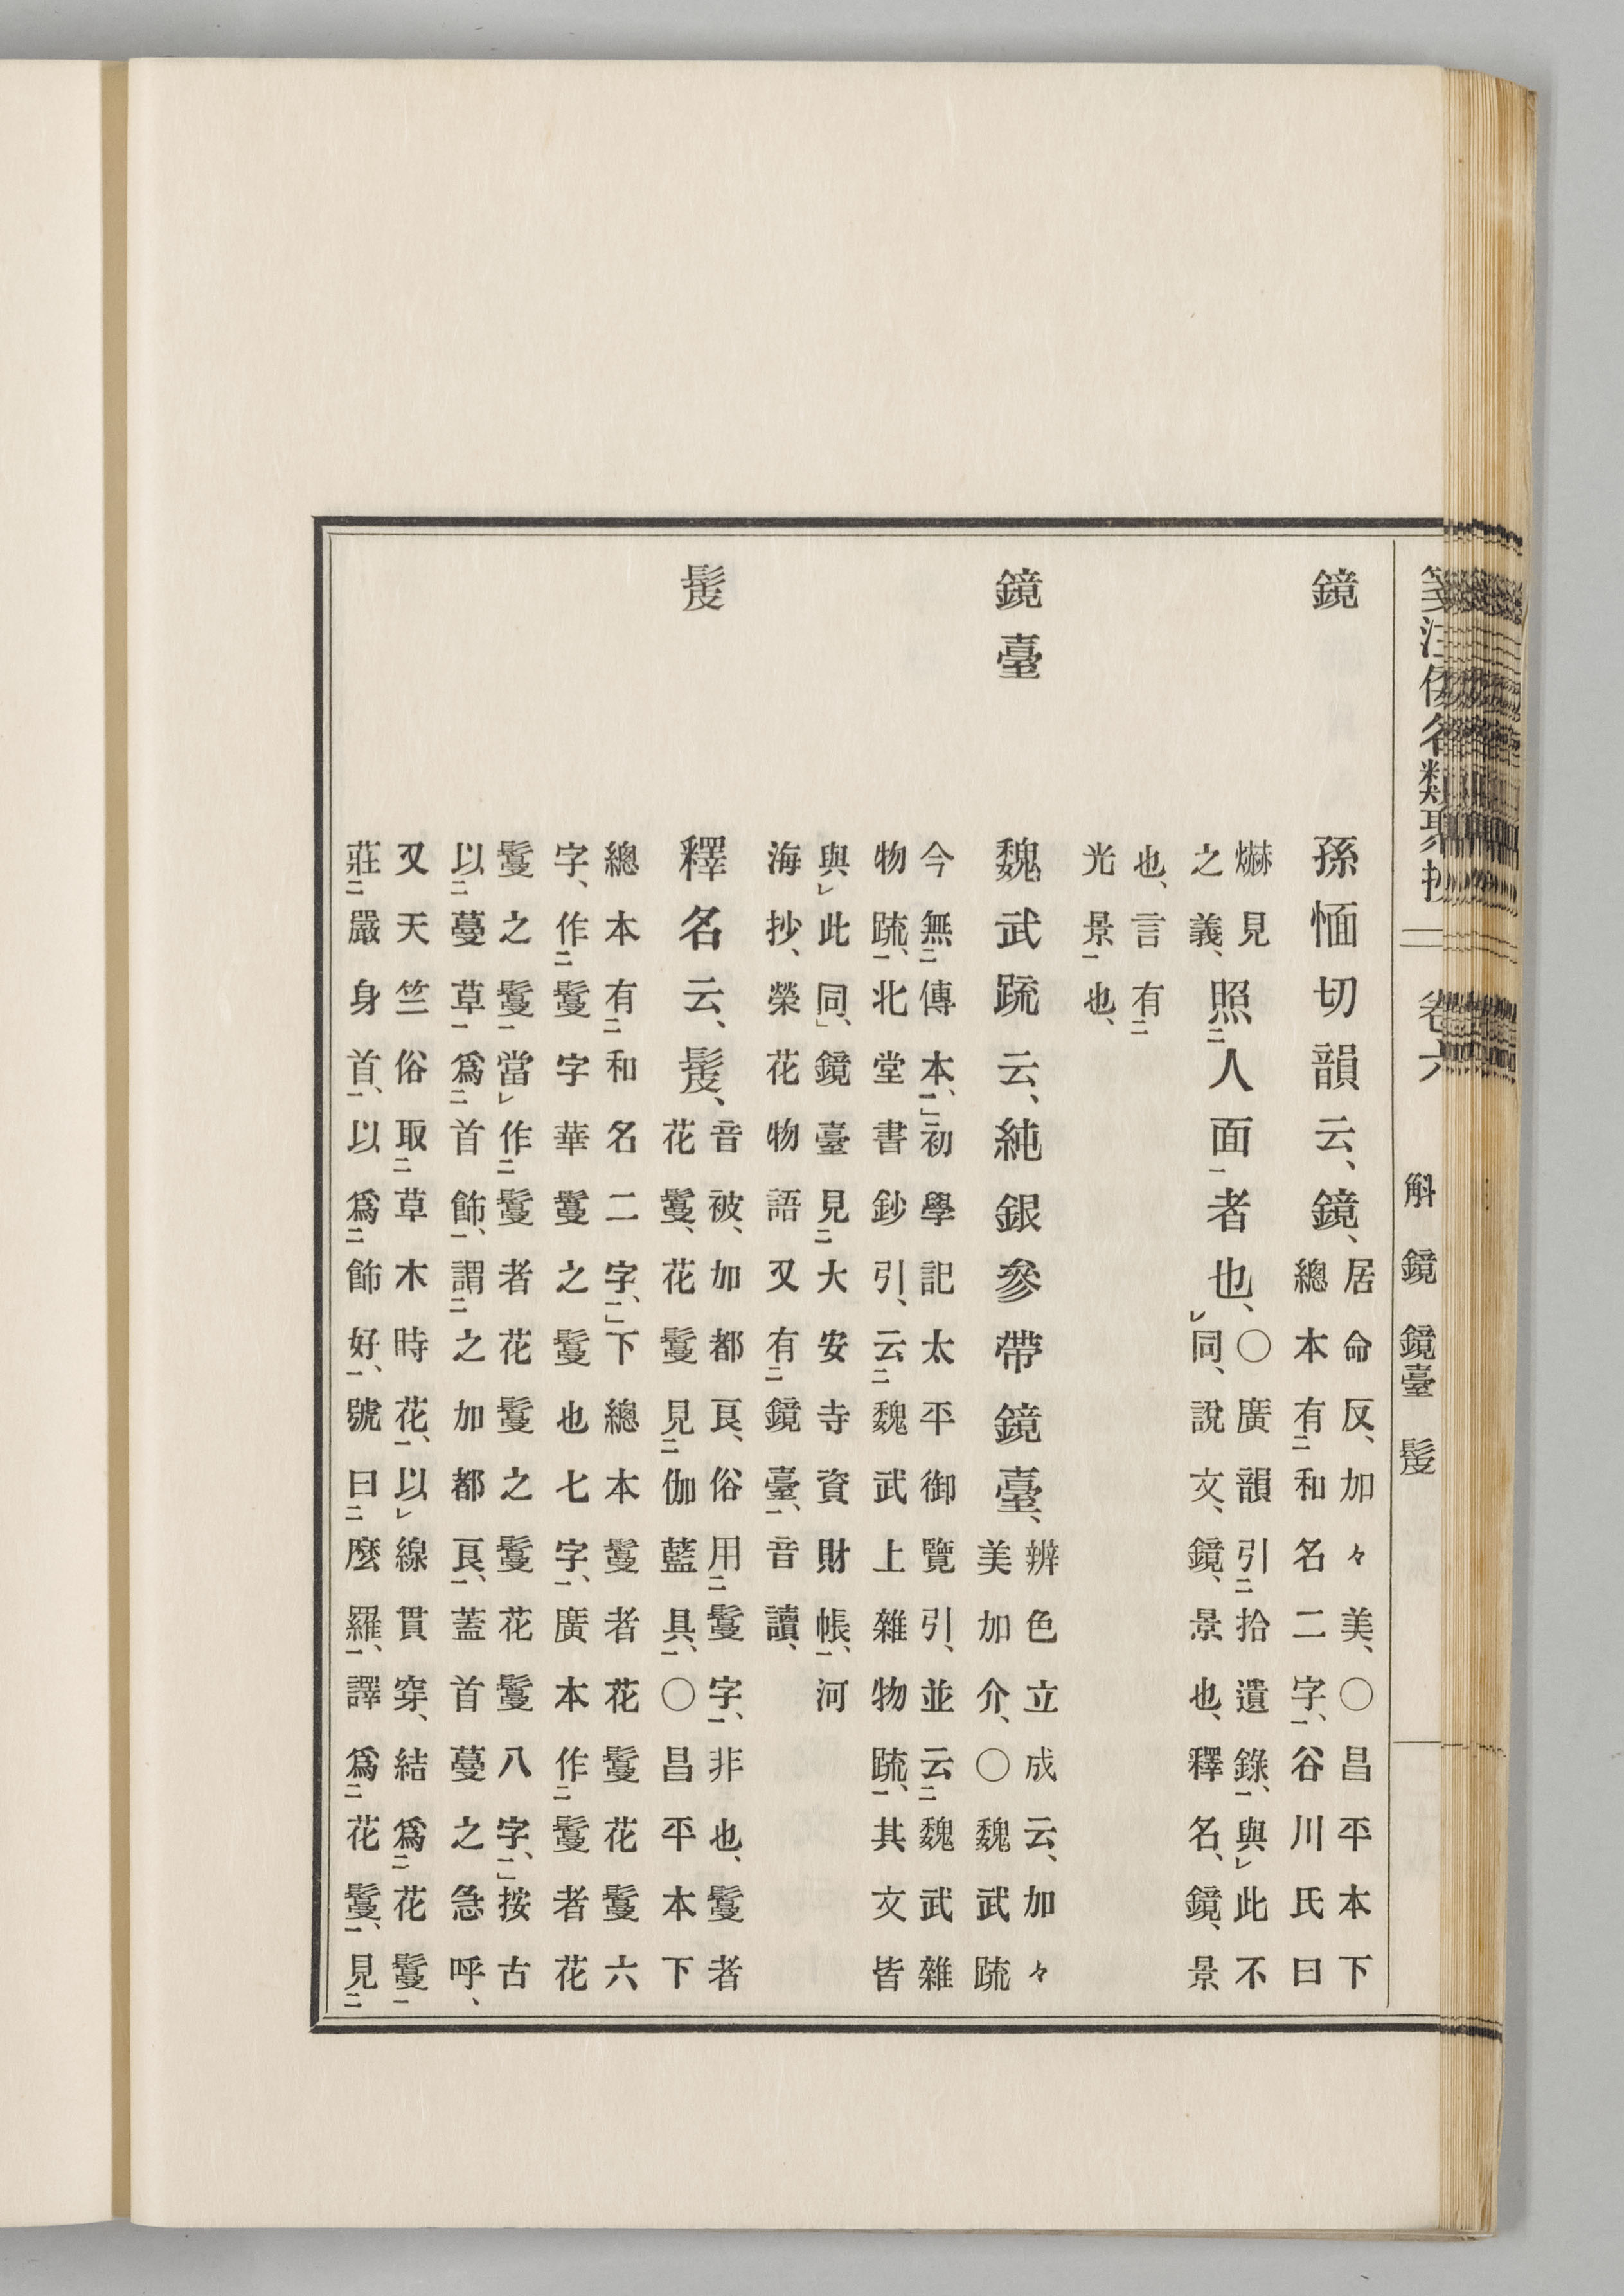 箋注倭名類聚抄 卷六 斛 鏡 鏡臺 髲
鏡 孫愐切韻云、鏡、
居命反、加々美、〇昌平本下
總本有㆓和名二字㆒、谷川氏曰
爀見
之義、
照㆓人面㆒者也、
〇廣韻引㆓拾遺錄㆒、與㆑此不
㆑同、說文、鏡、景也、釋名、鏡、景
也、言有㆓
光景㆒也、
鏡臺 魏武䟽云、純銀參帶鏡臺、
辨色立成云、加々
美加介、〇魏武䟽
今無㆓傳本㆒、」初學記太平御覽引、並云㆓魏武雜
物䟽㆒、北堂書鈔引、云㆓魏武上雜物䟽㆒、其文皆
與㆑此同、」鏡臺見㆓大安寺資財帳㆒、河
海抄、榮花物語又有㆓鏡臺㆒、音讀、
髲 釋名云、髲、
音被、加都良、俗用㆓鬘字㆒、非也、鬘者
花鬘、花鬘見㆓伽藍具㆒、〇昌平本下
總本有㆓和名二字㆒、」下總本鬘者花鬘花鬘六
字、作㆓鬘字華鬘之鬘也七字㆒、廣本作㆓鬘者花
鬘之鬘㆒當㆑作㆓鬘者花鬘之鬘花鬘八字㆒、」按古
以㆓蔓草㆒爲㆓首飾㆒、謂㆓之加都良㆒、蓋首蔓之急呼、
又天竺俗取㆓草木時花㆒、以㆑線貫穿、結爲㆓花鬘㆒
莊㆓嚴身首㆒、以爲㆓飾好㆒、號曰㆓麼羅㆒、譯爲㆓花鬘㆒、見㆓